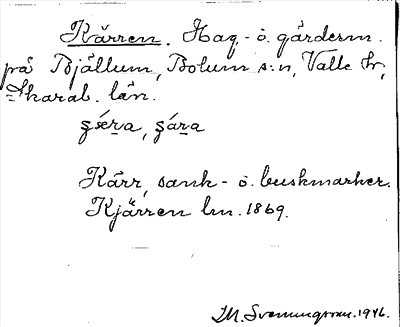 Kärren. Hag- o. gärdesm.
på Bjällum, Bolum s:n, Valle hd,
Skarab. län.
Kärr, sank- o. buskmarker.
Kjärren lm. 1869.
M. Svenungsson. 1946.